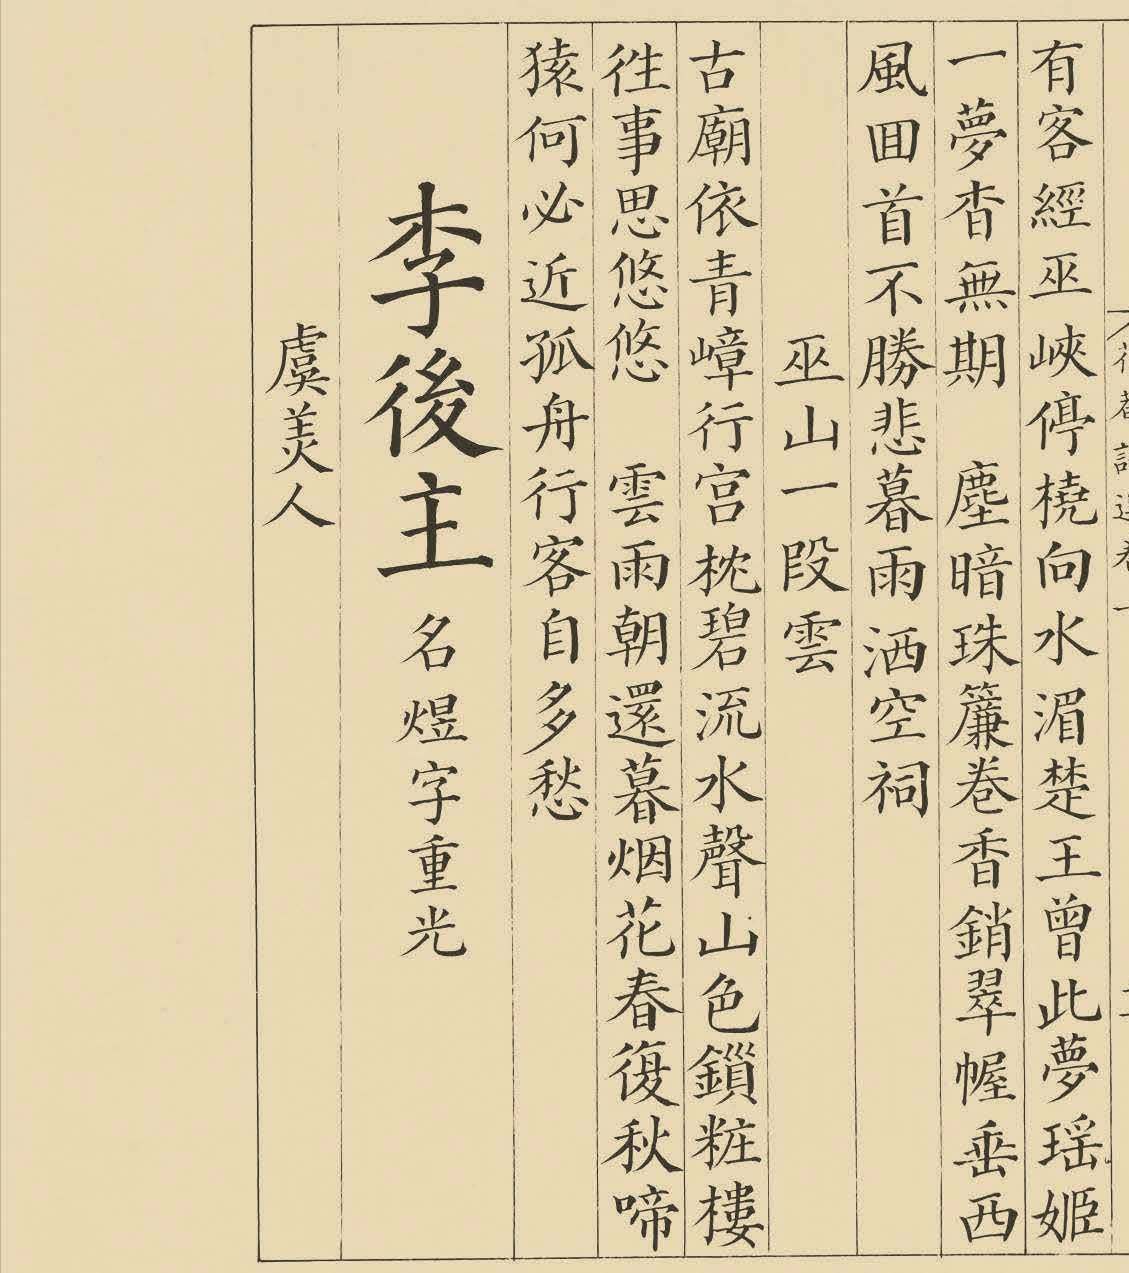 有客經巫峽停橈向水湄楚王曾此夢瑶姬
一夢杳無期　塵暗珠簾巻香銷翠幄垂西
風囬首不勝悲暮雨洒空祠
巫山一段雲
古廟依青嶂行宫枕碧流水聲山色鎻粧樓
徃事思悠悠　雲雨朝還暮烟花春復秋啼
猿何必近孤舟行客自多愁
李後主 名煜字重光
虞美人